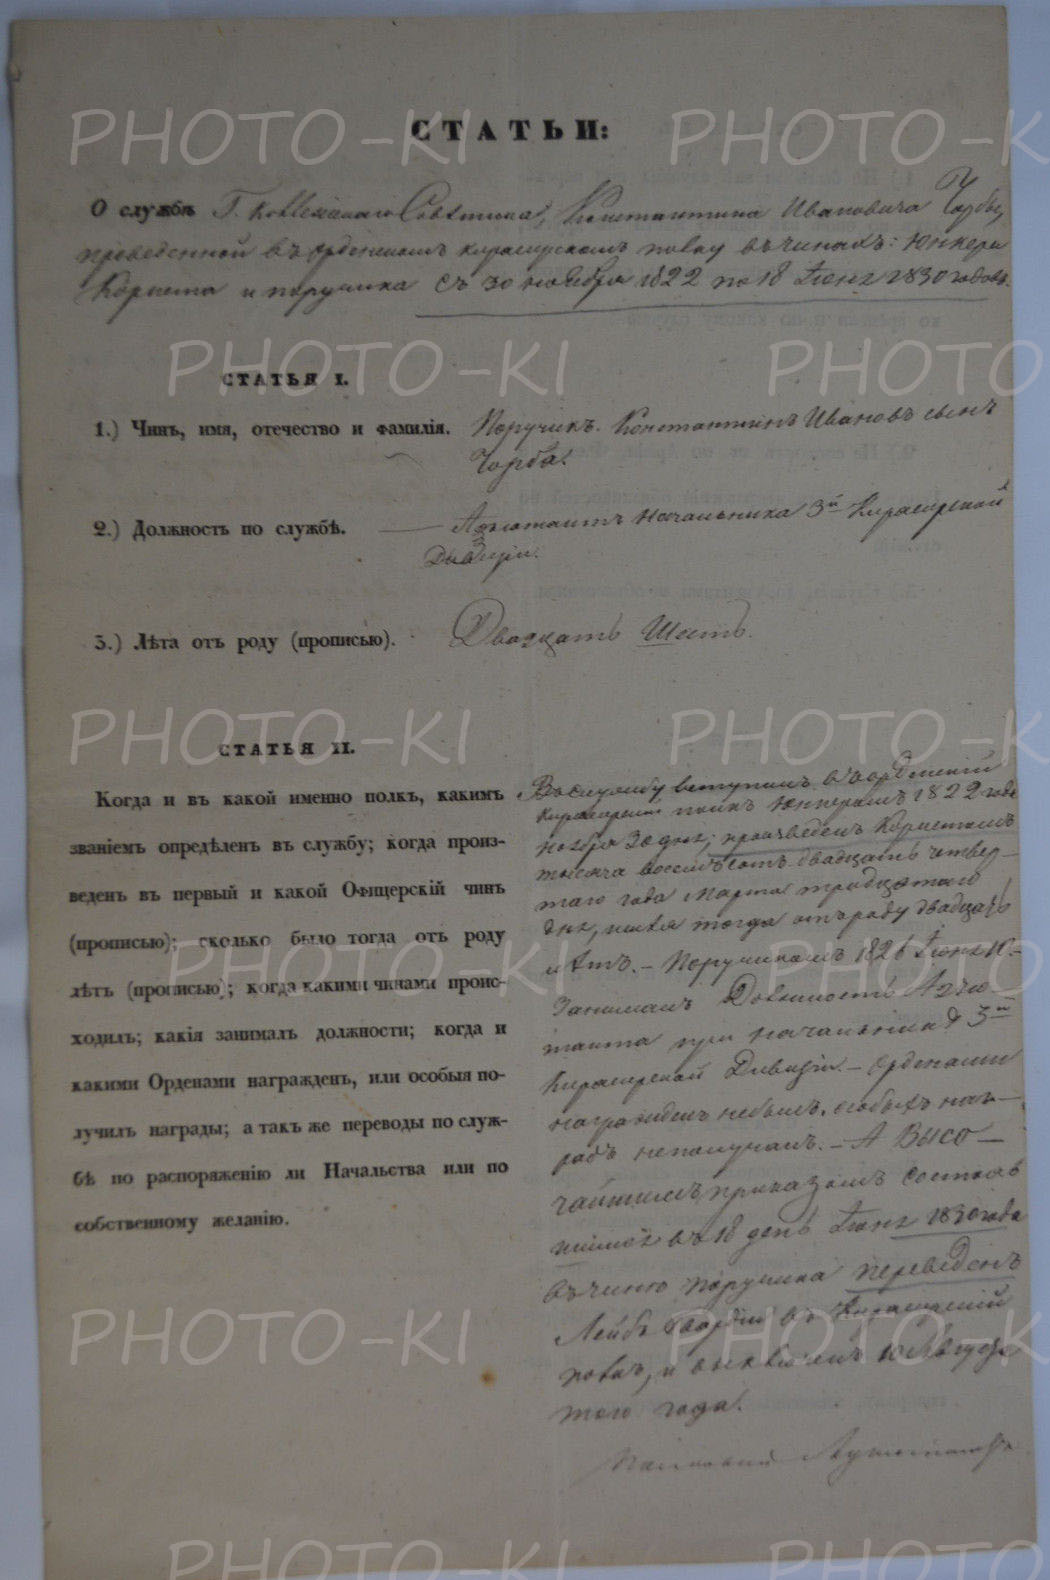 СТАТЬИ:
О службѣ Г. Коллежскаго Совѣтника, Константина Ивановича Чорбы,
проведенной въ Орденскомъ кирасирскомъ полку въ чинахъ: Юнкера
Корнета и поручика съ 30 ноября 1822 по 18 Іюня 1830 годовъ.
СТАТЬЯ I.
1.) Чинъ, имя, отечество и фамилія. Поручикъ. Константинъ Ивановъ сынъ
Чорба.
2.) Должность по службѣ. Адъютантъ Начальника 3й Кирасирской
Дивизіи.
3.) Лѣта отъ роду (прописью). Двадцать Шесть.
СТАТЬЯ II.
Когда и въ какой именно полкъ, какимъ
званіемъ опредѣленъ въ службу; когда произ-
веденъ въ первый и какой Офицерскій чинъ
(прописью); сколько было тогда отъ роду
лѣтъ (прописью); когда какими чинами проис-
ходилъ; какія занималъ должности; когда и
какими Орденами награжденъ, или особыя по-
лучилъ награды; а такъ же переводы по служ-
бѣ по распоряженію ли Начальства или по
собственному желанію.
Въ службу вступилъ въ Орденскій
Кирасирскій полкъ Юнкеромъ 1822 года
ноября 30 дня; произведенъ Корнетомъ
тысяча восемьсотъ двадцать четвер-
таго года Марта тридцатаго
дня, имѣя тогда отъ роду двадцать
лѣтъ. – Поручикомъ 1826 Іюня 10. –
Занималъ Должность Адъю-
танта при начальникѣ 3й
Кирасирской Дивизіи. – Орденами
награжденъ небылъ, особыхъ наг-
радъ неполучалъ. – А Высо-
чайшимъ приказомъ состояв
шимся въ 18 день Іюня 1830 года
въ чинѣ поручика переведенъ
Лейбъ Гвардіи въ Кирасирскій
полкъ, и 10 Августа
того года.
Полковой Адъютантъ
PHOTO-KI
PHOTO-KI
PHOTO-KI
PHOTO-KI
PHOTO-KI
PHOTO-KI
PHOTO-KI
PHOTO-KI
PHOTO-KI
PHOTO-KI
PHOTO-KI
PHOTO-KI